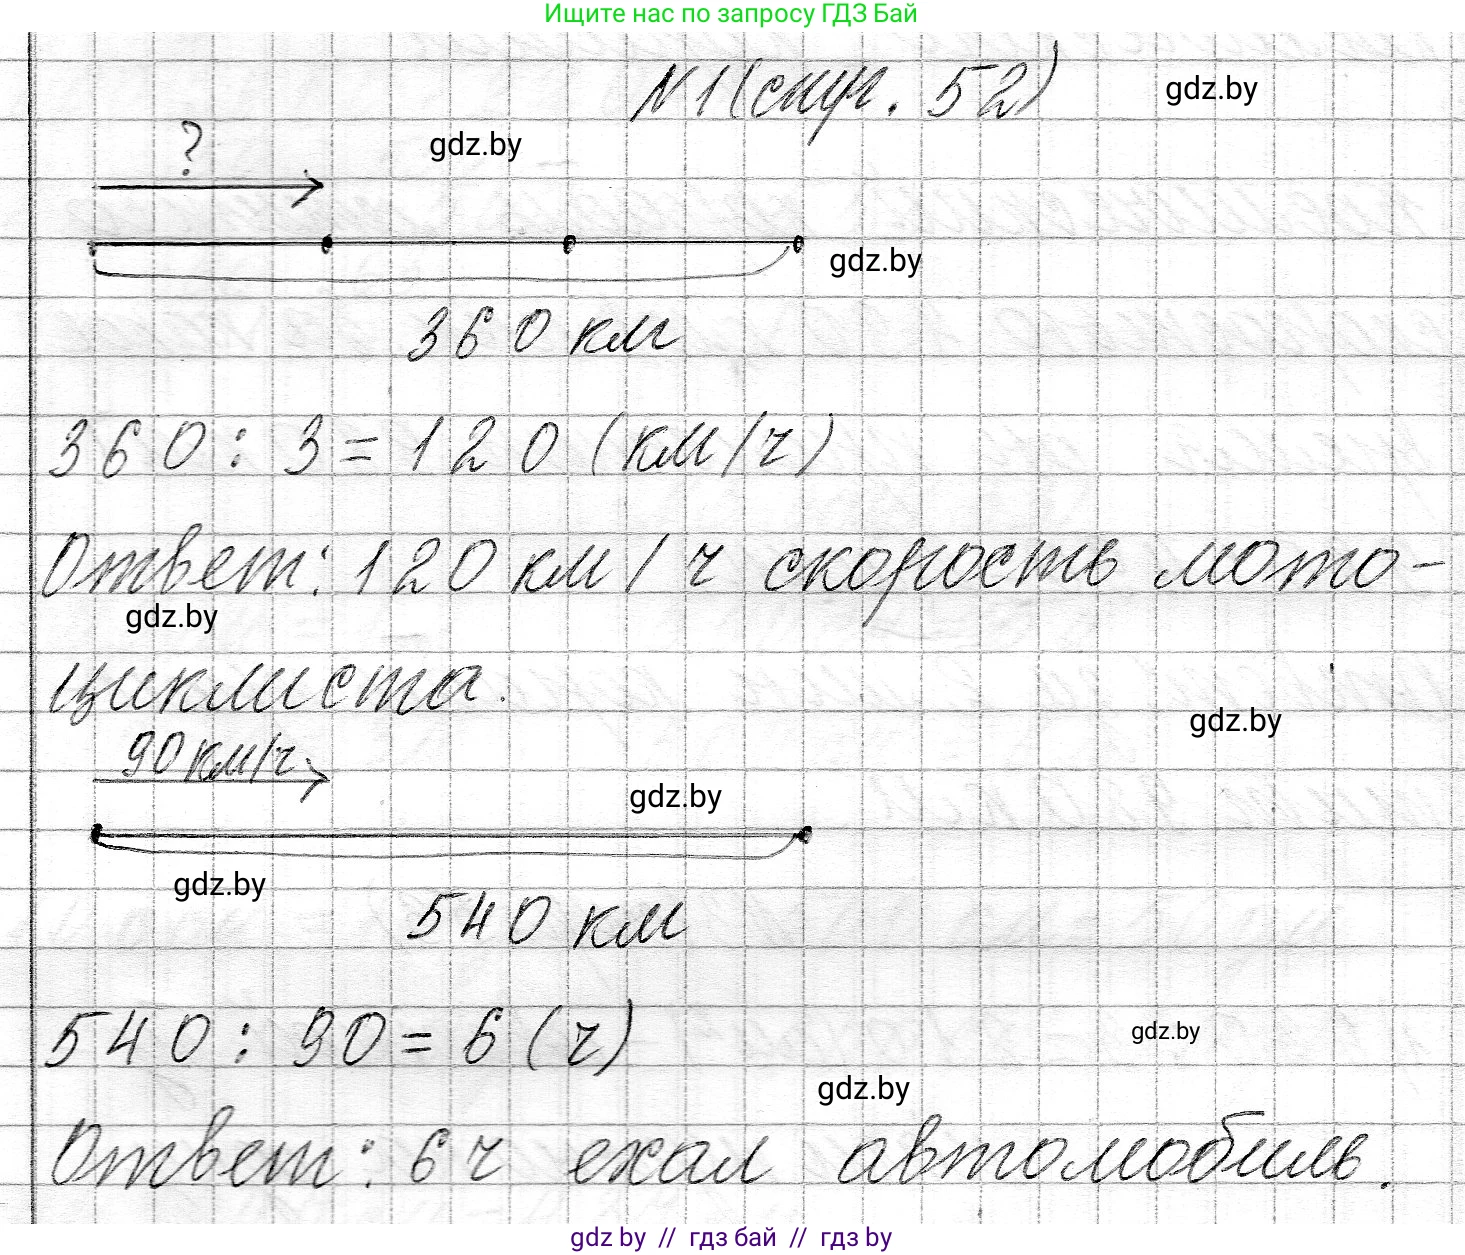 Ищите нас по запросу ГДЗ Бай
N1 (стр. 52)
gdz.by
?
gdz.by
gdz.by
360 км
360 : 3 = 120 (км/ч)
Ответ: 120 км/ч скорость мото-
gdz.by
циклиста.
gdz.by
90 км/ч
gdz.by
gdz.by
540 км
540 : 90 = 6 (ч)
gdz.by
gdz.by
Ответ: 6 ч ехал автомобиль.
gdz by // гдз бай // гдз by